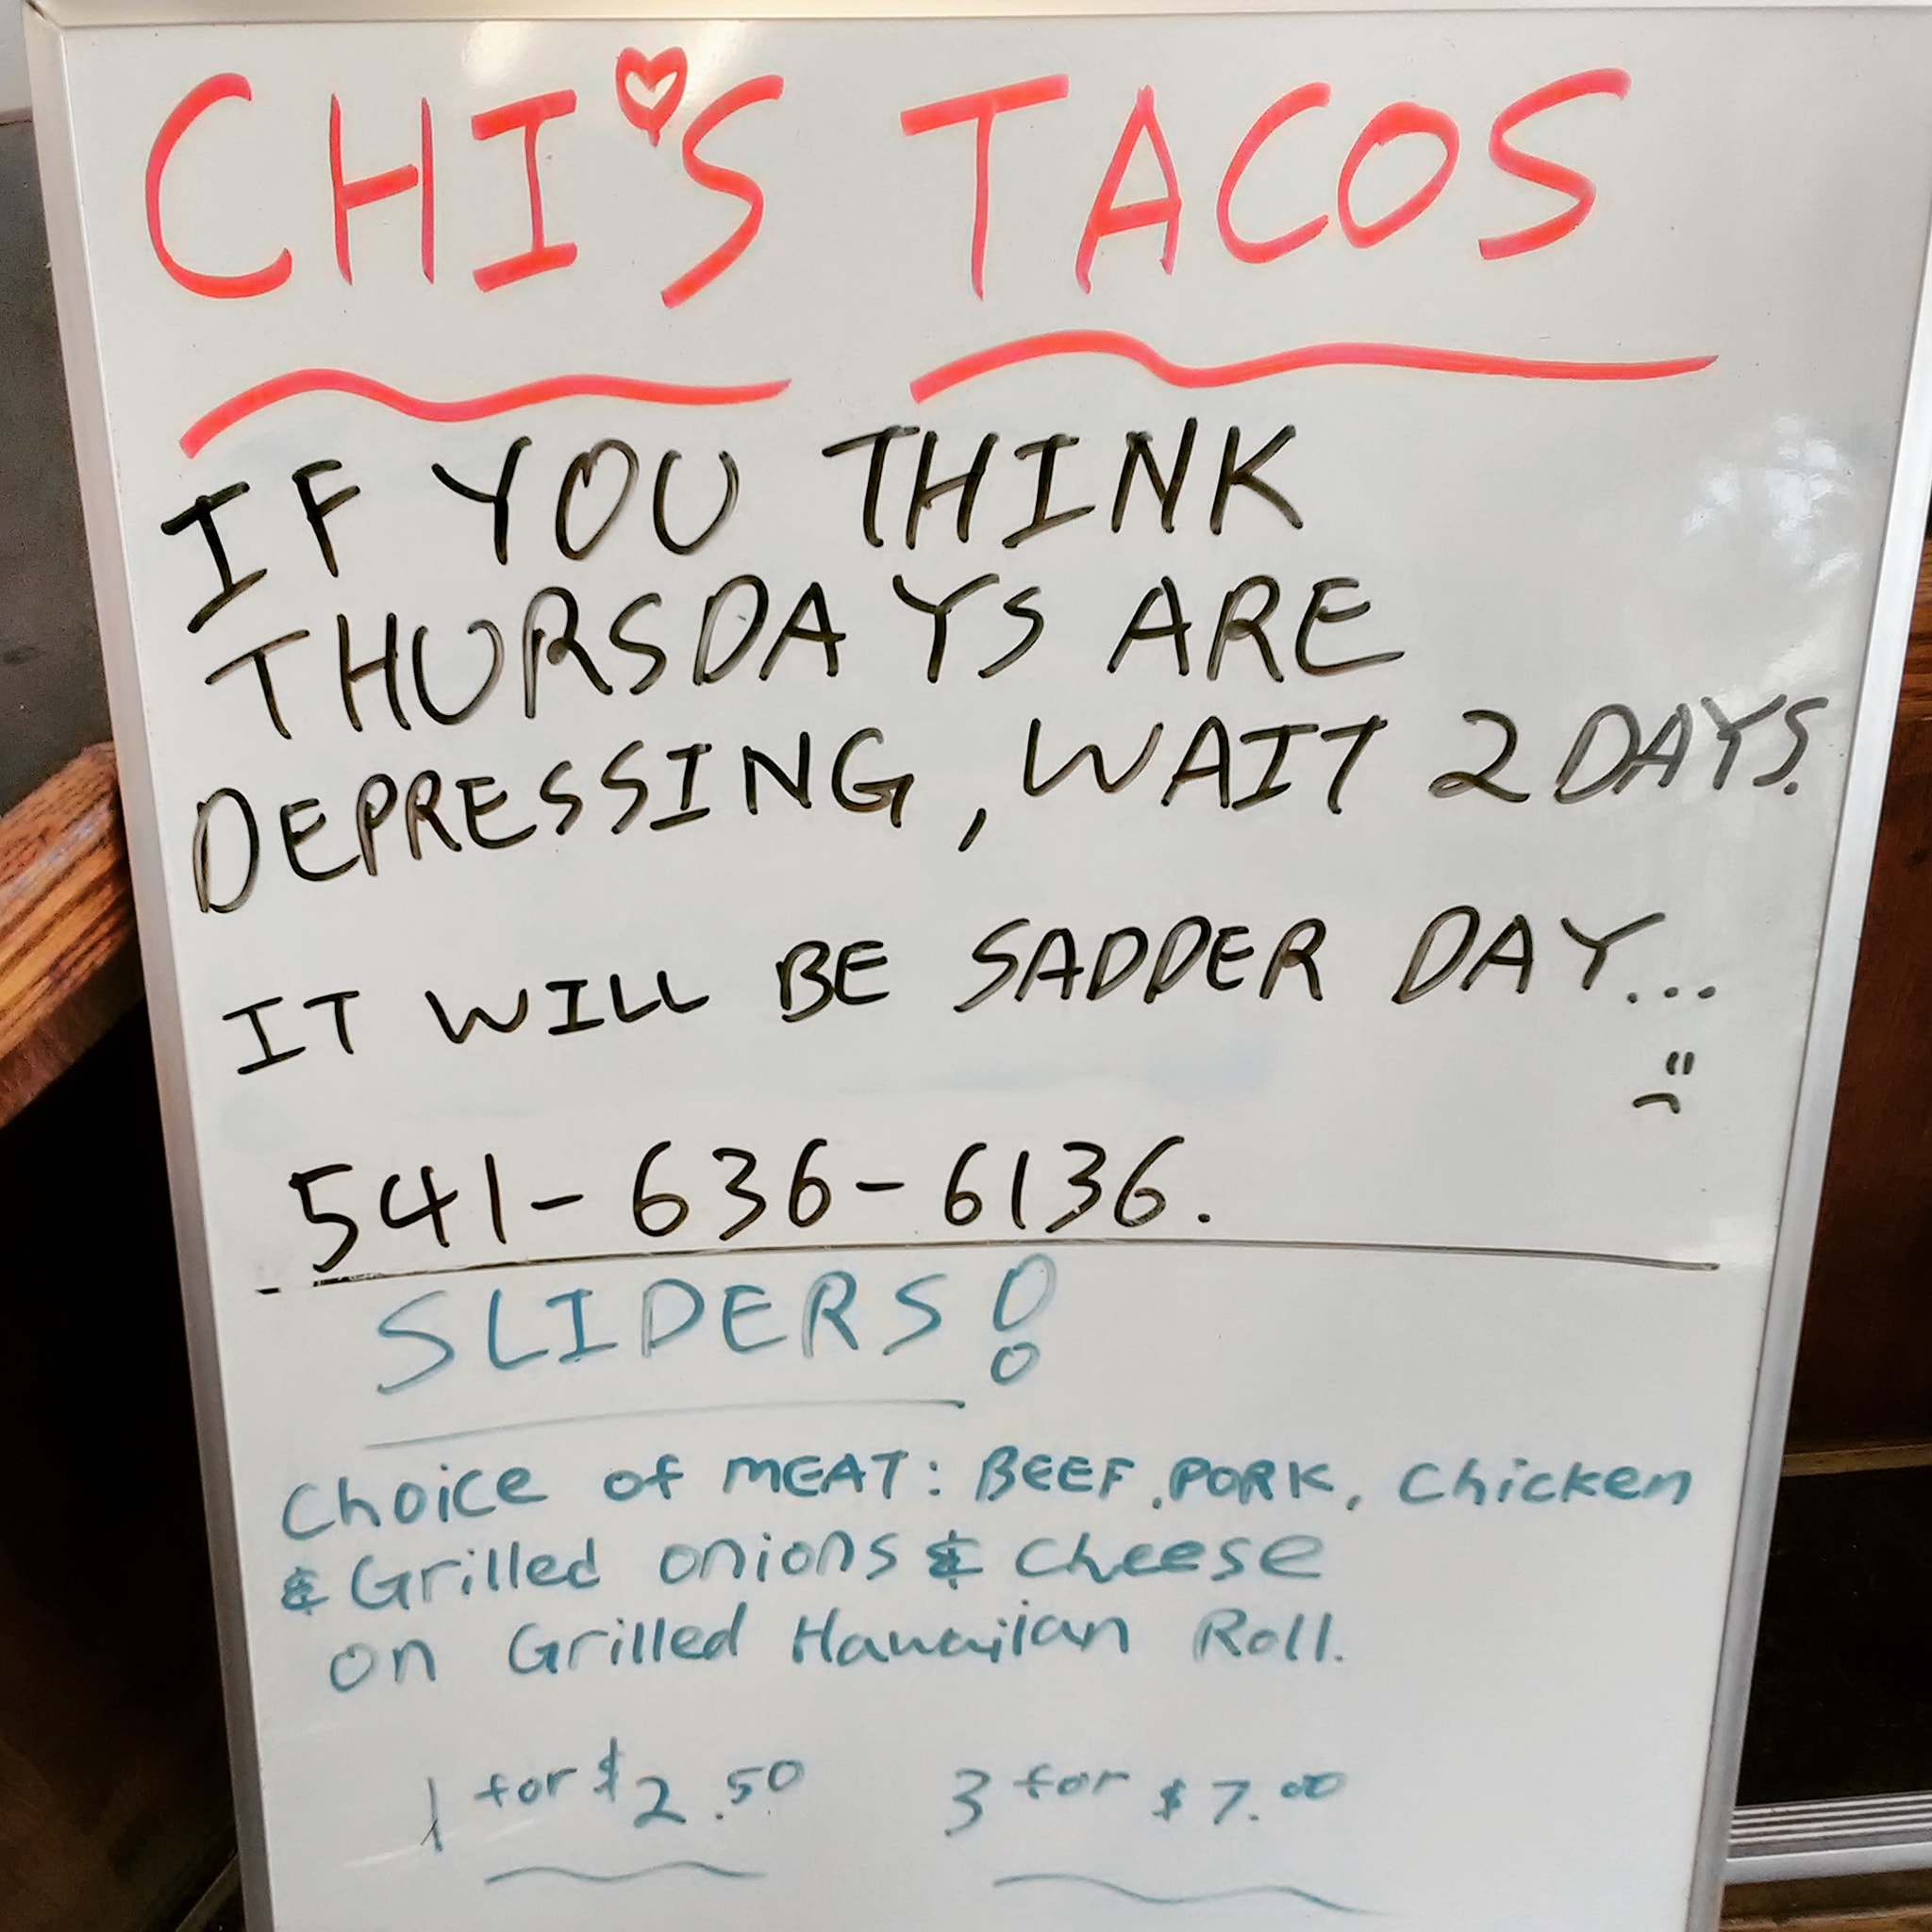 CHI'S TACOS
IF YOU THINK
THURSDAYS ARE
DEPRESSING, WAIT 2 DAYS.
IT WILL BE SADDER DAY...
541-636-6136.
SLIDERS!
Choice of MEAT: BEEF, PORK, Chicken
& Grilled onions & cheese
on Grilled Hawaiian Roll.
1 for $2.50 3 for $7.00